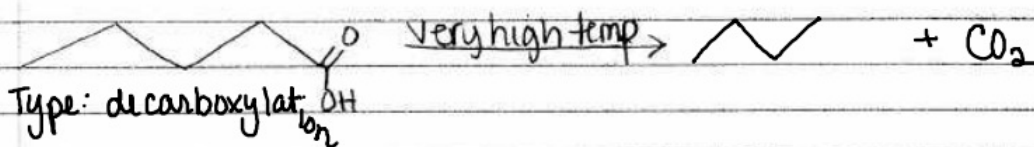 O very high temp + CO2
OH
Type: decarboxylation